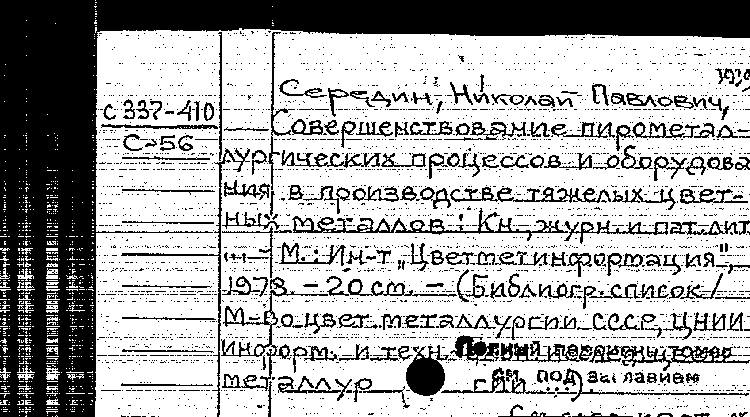 Середин, Николай Павлович,
С 337-410
Совершенствование пирометал-
С-56
лургических процессов и оборудова
ния в производстве тяжелых цвет-
ных металлов : Кн., журн. и пат. лит
... - М. : Ин-т "Цветметинформация",
1978. - 20 см. - (Библиогр. список /
М-во цвет. металлургии СССР, ЦНИИ
информ. и техн.
Полный
см. под заглавием
металлур гии ...).